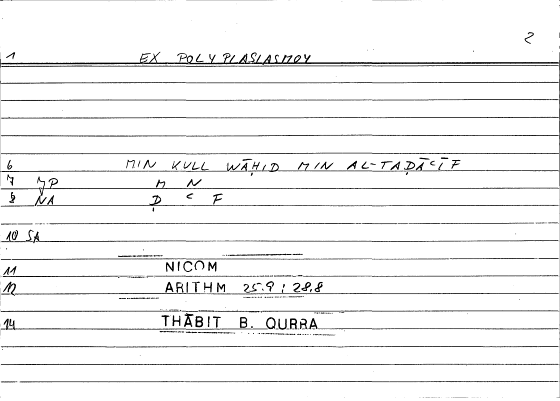 2
1 EX POLYPLASLASMOY
6 MIN KULL WĀḤID MIN AL-TAḌĀʿĪF
7 JP M N
8 NA Ḍ ʿ F
10 SA
11 NICOM
12 ARITHM 25.9 ; 28.8
14 THĀBIT B. QURRA